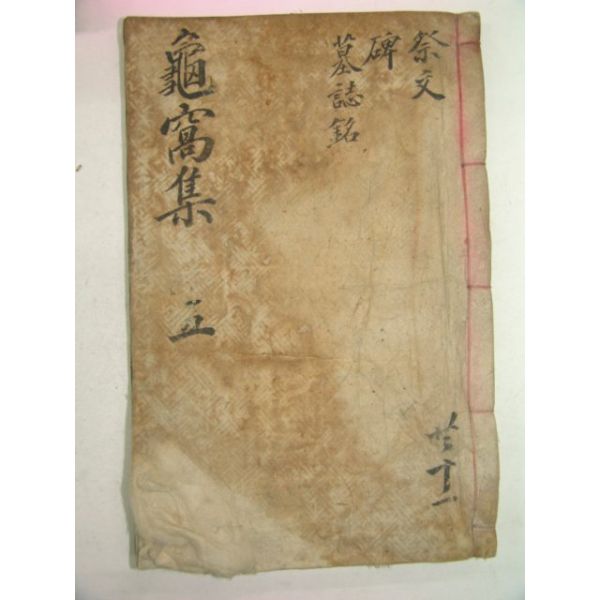 祭文
碑
墓誌銘
共十一
龜窩集 五